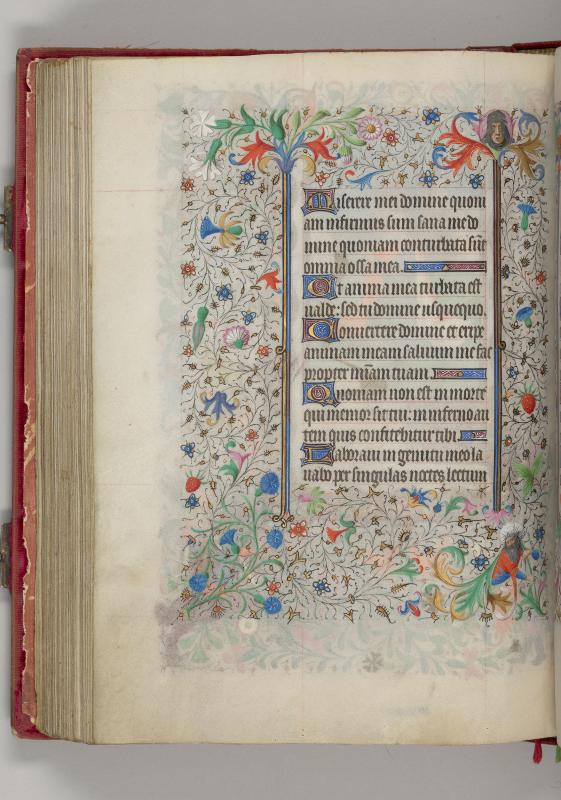 Miserere mei domine quoni
am infirmus sum sana me do
mine quoniam conturbata sūt
omnia ossa mea.
Et anima mea turbata est
valde: sed tu domine usquequo.
Convertere domine et eripe
animam meam salvum me fac
propter mīam tuam.
Quoniam non est in morte
qui memor sit tui: in inferno au
tem quis confitebitur tibi.
Laboravi in gemitu meo la
vabo per singulas noctes lectum